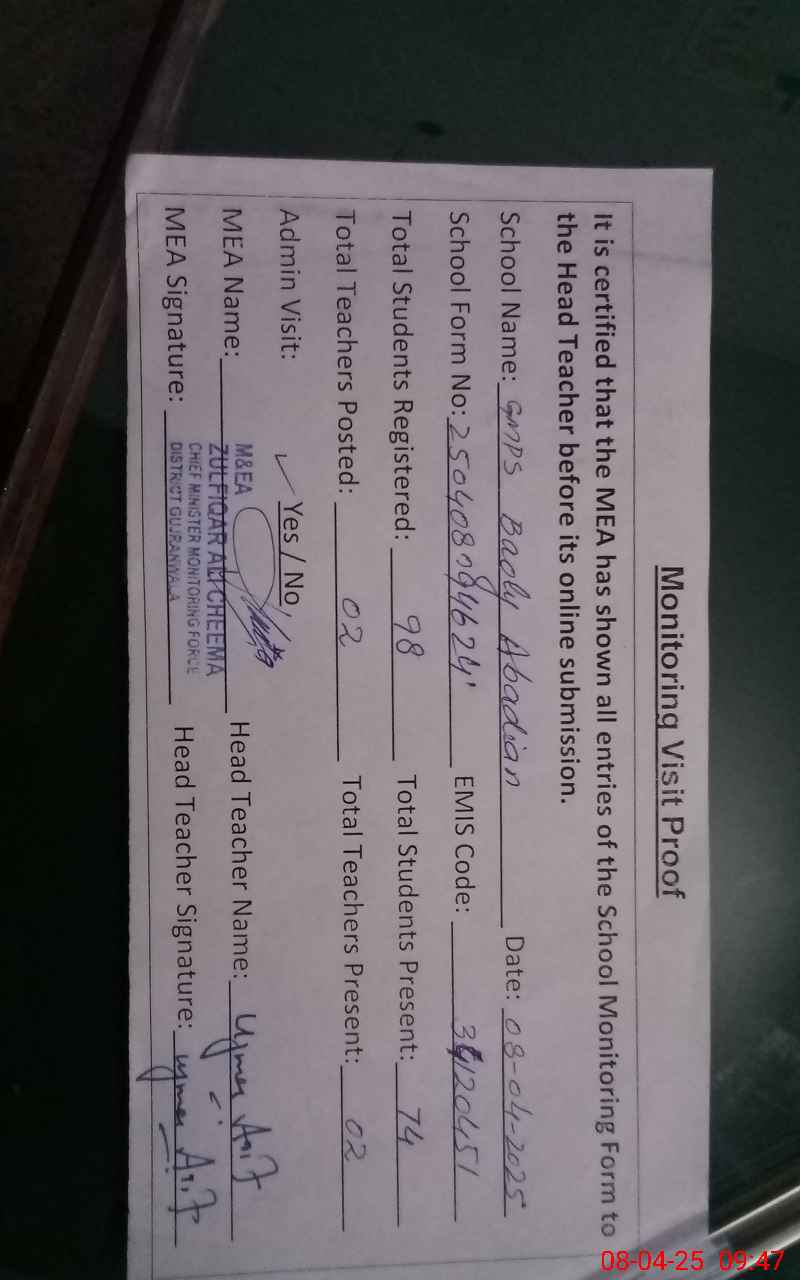 Monitoring Visit Proof
It is certified that the MEA has shown all entries of the School Monitoring Form to
the Head Teacher before its online submission.
School Name: GMPS Baoly Abadian Date: 08-04-2025
School Form No: EMIS Code: 34120451
Total Students Registered: 98 Total Students Present: 74
Total Teachers Posted: 02 Total Teachers Present: 02
Admin Visit: ✓ Yes / No
MEA Name: Head Teacher Name:
MEA Signature: Head Teacher Signature:
M&EA
ZULFIQAR ALI CHEEMA
CHIEF MINISTER MONITORING FORCE
DISTRICT GUJRANWALA
08-04-25 09:47